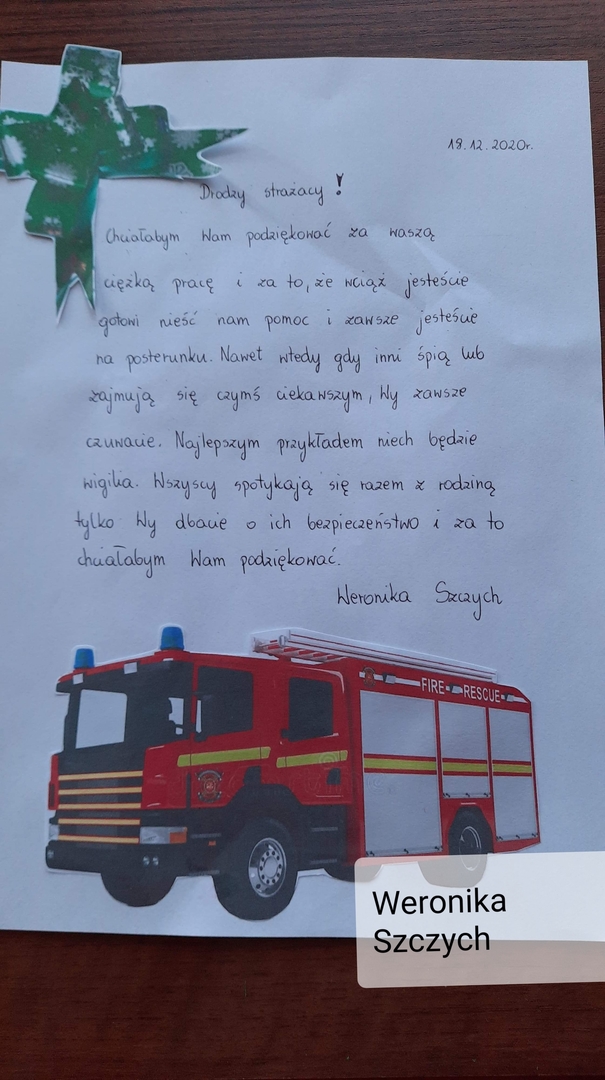 18.12.2020r.
Drodzy strażacy!
Chciałabym Wam podziękować za waszą
ciężką pracę i za to, że wciąż jesteście
gotowi nieść nam pomoc i zawsze jesteście
na posterunku. Nawet wtedy gdy inni śpią lub
zajmują się czymś ciekawszym, Wy zawsze
czuwacie. Najlepszym przykładem niech będzie
wigilia. Wszyscy spotykają się razem z rodziną
tylko Wy dbacie o ich bezpieczeństwo i za to
chciałabym Wam podziękować.
Weronika Szczych
FIRE RESCUE
Weronika
Szczych